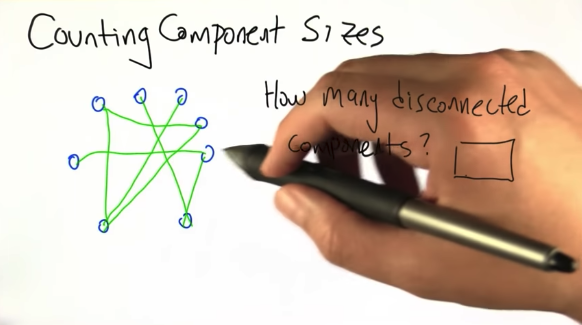 Counting Component Sizes
How many disconnected
components?